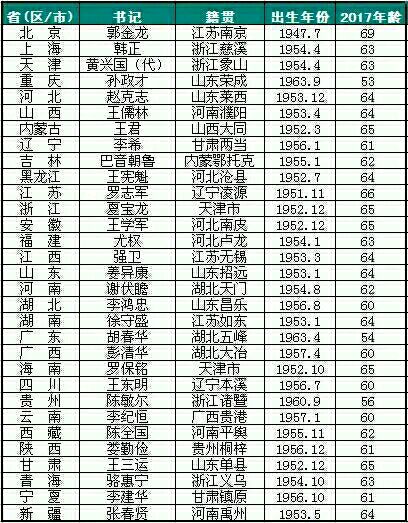 省(区/市) 书记 籍贯 出生年份 2017年龄
北 京 郭金龙 江苏南京 1947.7 69
上 海 韩正 浙江慈溪 1954.4 63
天 津 黄兴国（代） 浙江象山 1954.4 63
重 庆 孙政才 山东荣成 1963.9 53
河 北 赵克志 山东莱西 1953.12 64
山 西 王儒林 河南濮阳 1953.4 64
内蒙古 王君 山西大同 1952.3 65
辽 宁 李希 甘肃两当 1956.1 61
吉 林 巴音朝鲁 内蒙鄂托克 1955.1 62
黑龙江 王宪魁 河北沧县 1952.7 64
江 苏 罗志军 辽宁凌源 1951.11 66
浙 江 夏宝龙 天津市 1952.12 65
安 徽 王学军 河北南皮 1952.12 65
福 建 尤权 河北卢龙 1954.1 63
江 西 强卫 江苏无锡 1953.3 64
山 东 姜异康 山东招远 1953.1 64
河 南 谢伏瞻 湖北天门 1954.8 62
湖 北 李鸿忠 山东昌乐 1956.8 60
湖 南 徐守盛 江苏如东 1953.1 64
广 东 胡春华 湖北五峰 1963.4 54
广 西 彭清华 湖北大冶 1957.4 60
海 南 罗保铭 天津市 1952.10 65
四 川 王东明 辽宁本溪 1956.7 60
贵 州 陈敏尔 浙江诸暨 1960.9 56
云 南 李纪恒 广西贵港 1957.1 60
西 藏 陈全国 河南平舆 1955.11 62
陕 西 娄勤俭 贵州桐梓 1956.12 61
甘 肃 王三运 山东单县 1952.12 65
青 海 骆惠宁 浙江义乌 1954.10 63
宁 夏 李建华 甘肃镇原 1956.10 61
新 疆 张春贤 河南禹州 1953.5 64